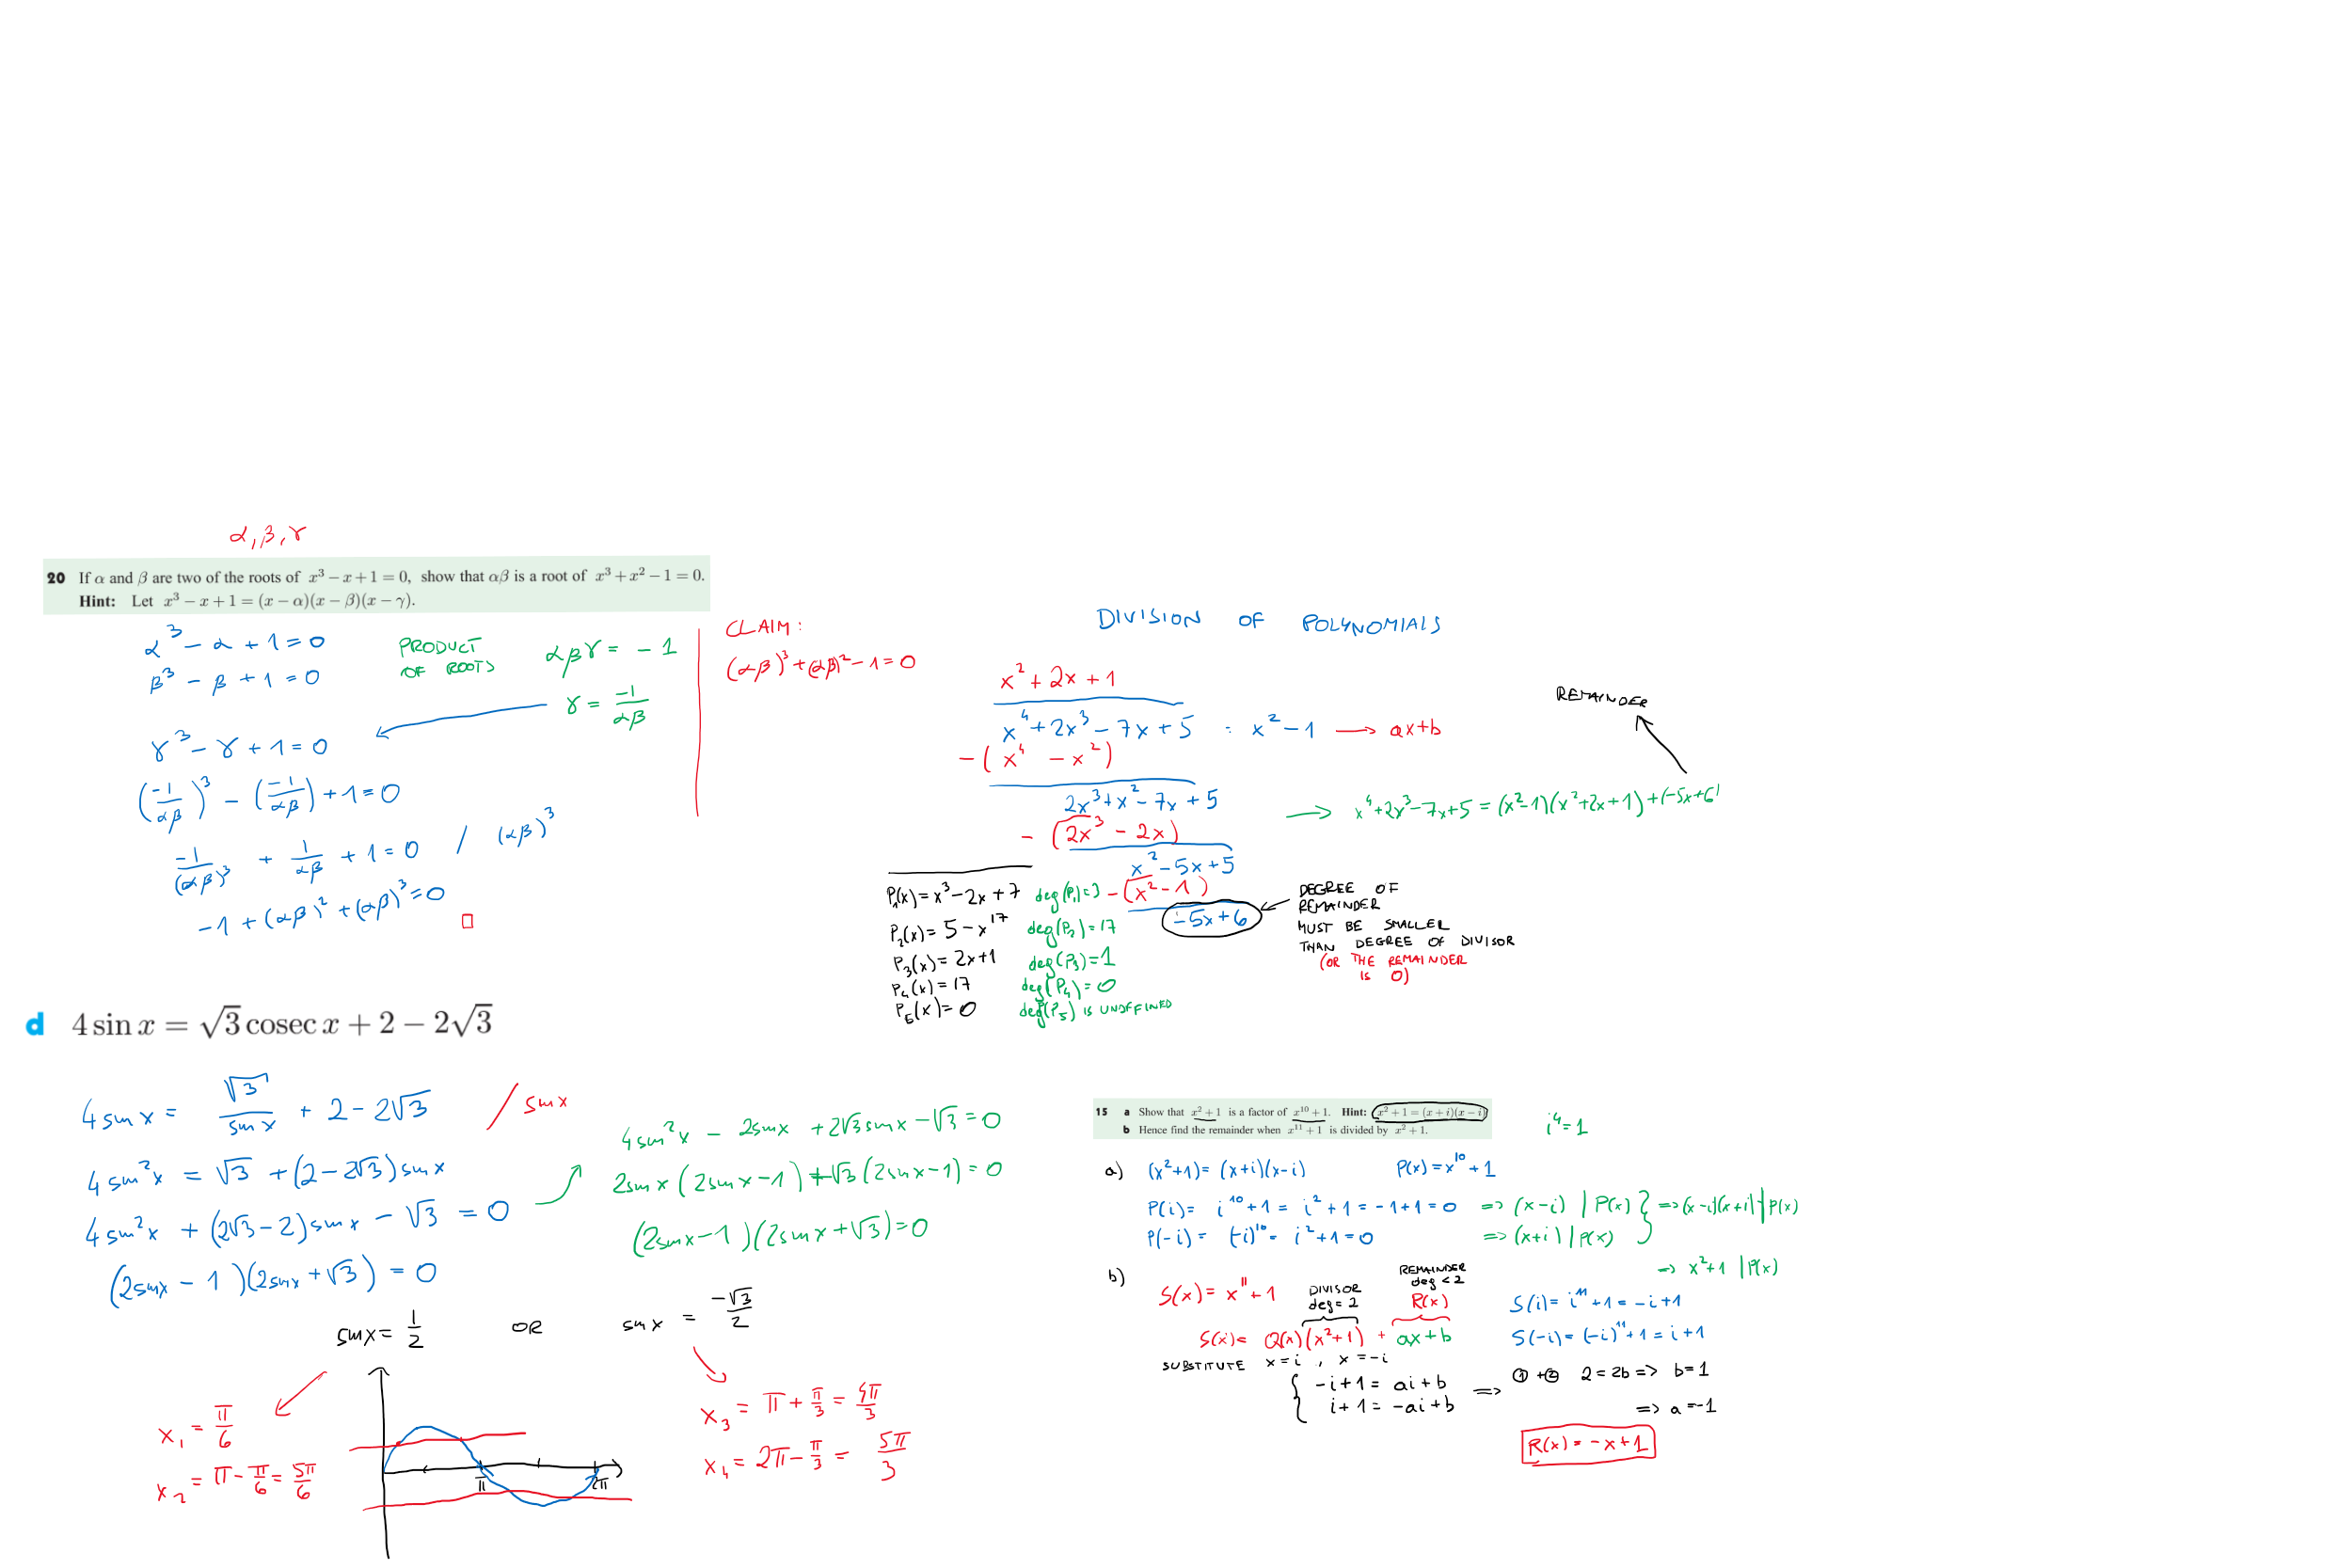 α, β, γ
20 If α and β are two of the roots of x³ − x + 1 = 0, show that αβ is a root of x³ + x² − 1 = 0.
Hint: Let x³ − x + 1 = (x − α)(x − β)(x − γ).
α³ − α + 1 = 0
β³ − β + 1 = 0
PRODUCT OF ROOTS αβγ = − 1
γ = −1/αβ
γ³ − γ + 1 = 0
(−1/αβ)³ − (−1/αβ) + 1 = 0
−1/(αβ)³ + 1/αβ + 1 = 0 / (αβ)³
−1 + (αβ)² + (αβ)³ = 0 □
CLAIM:
(αβ)³ + (αβ)² − 1 = 0
DIVISION OF POLYNOMIALS
x² + 2x + 1
x⁴ + 2x³ − 7x + 5 : x² − 1 → ax+b
−( x⁴ − x² )
2x³ + x² − 7x + 5
− (2x³ − 2x)
x² − 5x + 5
− (x² − 1)
−5x + 6
REMAINDER
→ x⁴+2x³−7x+5 = (x²−1)(x²+2x+1)+(−5x+6)
DEGREE OF
REMAINDER
MUST BE SMALLER
THAN DEGREE OF DIVISOR
(OR THE REMAINDER
IS 0)
P₁(x) = x³ − 2x + 7 deg(P₁)=3
P₂(x) = 5 − x¹⁷ deg(P₂)=17
P₃(x) = 2x+1 deg(P₃)=1
P₄(x) = 17 deg(P₄)=0
P₅(x) = 0 deg(P₅) IS UNDEFFINED
d 4 sin x = √3 cosec x + 2 − 2√3
4 sin x = √3/sin x + 2 − 2√3 / sin x
4 sin²x = √3 + (2 − 2√3) sin x
4 sin²x + (2√3 − 2) sin x − √3 = 0
(2sin x − 1)(2sin x + √3) = 0
4 sin²x − 2sin x + 2√3 sin x − √3 = 0
2sin x (2sin x − 1) + √3 (2sin x − 1) = 0
(2sin x − 1)(2sin x + √3) = 0
sin x = 1/2 OR sin x = −√3/2
x₁ = π/6
x₂ = π − π/6 = 5π/6
π 2π
x₃ = π + π/3 = 4π/3
x₄ = 2π − π/3 = 5π/3
15 a Show that x² + 1 is a factor of x¹⁰ + 1. Hint: x² + 1 = (x + i)(x − i)
b Hence find the remainder when x¹¹ + 1 is divided by x² + 1.
i⁴ = 1
a) (x²+1) = (x+i)(x−i) P(x) = x¹⁰ + 1
P(i) = i¹⁰ + 1 = i² + 1 = −1 + 1 = 0 ⇒ (x−i) | P(x) } ⇒ (x−i)(x+i) | P(x)
P(−i) = (−i)¹⁰ = i² + 1 = 0 ⇒ (x+i) | P(x)
⇒ x²+1 | P(x)
b) S(x) = x¹¹ + 1
DIVISOR
deg = 2
REMAINDER
deg < 2
R(x)
S(x) = Q(x)(x²+1) + ax+b
SUBSTITUTE x = i , x = −i
S(i) = i¹¹ + 1 = −i + 1
S(−i) = (−i)¹¹ + 1 = i + 1
{ −i + 1 = ai + b
i + 1 = −ai + b ⇒ ① + ② 2 = 2b ⇒ b = 1
⇒ a = −1
R(x) = −x + 1